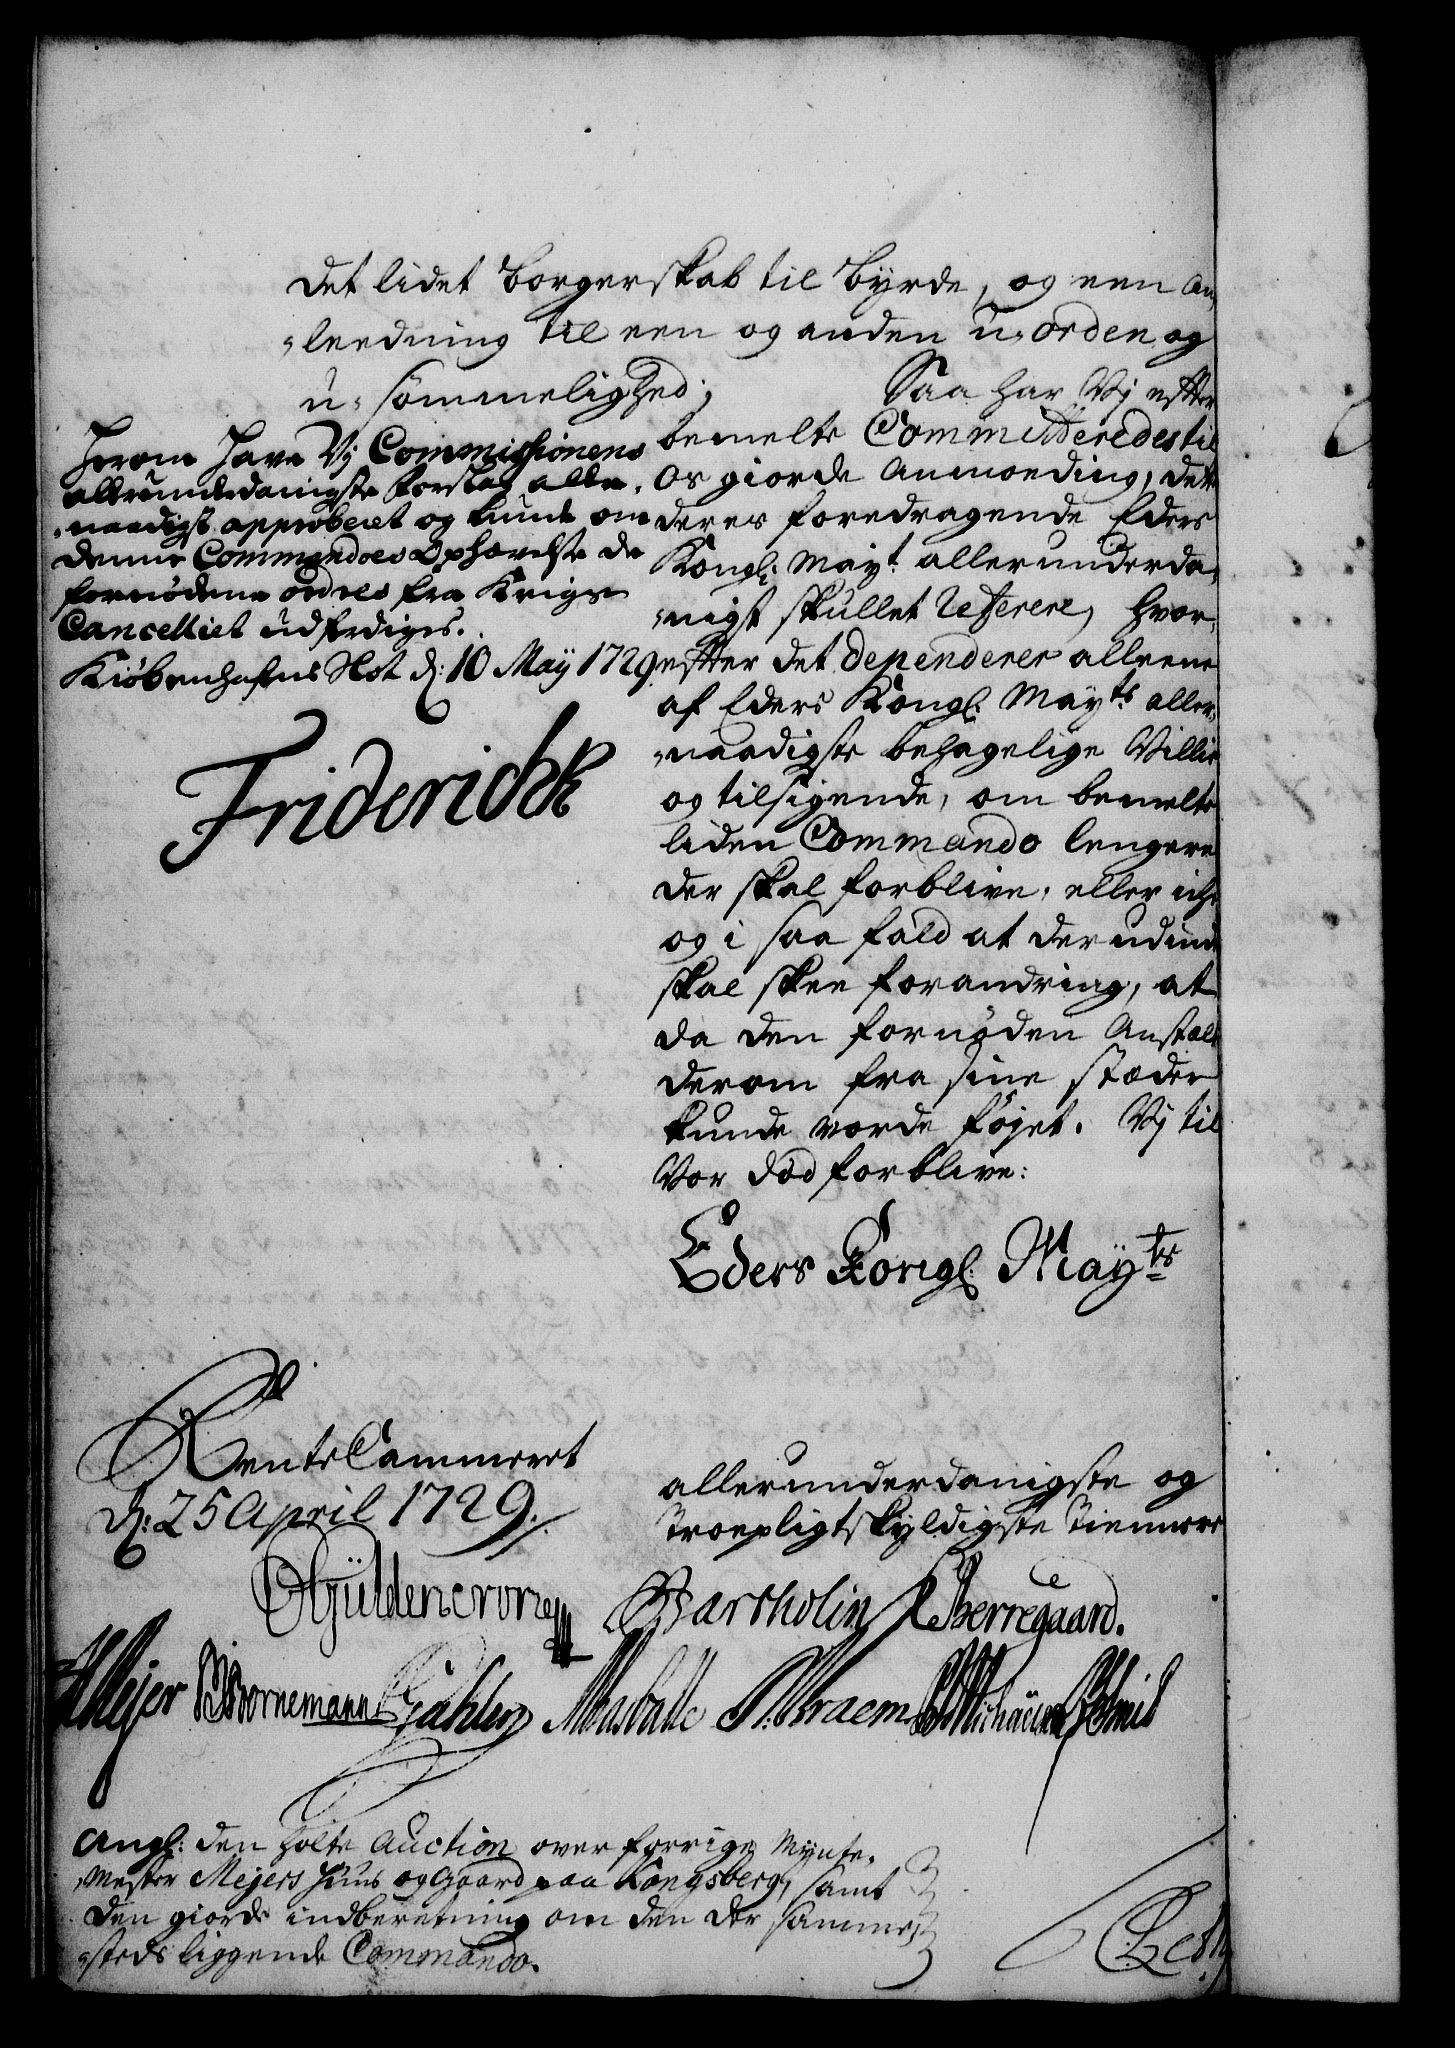 det lidet Borgerskab til Byrde, og een An,
,leedning til een og anden u,orden og
u,sømmelighed;
Saa har Vj effter
bemelte Committeredes til
Os giorde Anmoeding, dette
deres foredragende Eders
Kongl. Mayt. allerunderda,
,nigst skullet referere, hvor,
effter det dependerer alleene
af Eders Kongl. Mayts. aller,
,naadigste behagelige Villie
og tilsigende, om bemelte
liden Commando lengere
der skal forblive, eller iche
og i saa fald at derudinde
skal skee forandring, at
da den fornøden Anstalt
derom fra sine stæder
kunde vorde føjet. Vj til
Vor død forblive:
Eders Kongl. Mayts
Herom have Vj Commissionens
allerunderdanigste Forslag aller,
,naadigst approberet og kunde om
denne Commandoes Ophævelse de
fornødene ordres fra Krigs
Cancelliet udferdiges.
Kiøbenhafns Slot d: 10 May 1729
Friderich R
RenteCammeret
d: 25 April 1729.
allerunderdanigste og
troepligtskyldigste Tiennere
Güldencrone
Bartholin
Berregaard.
Mejer
Bornemann
Gahlen
Braem
den holte Auction over forrige Mynte,
,mester Mejers Huus og Gaard paa Kongsberg, samt
den giorde indberetning om den der sammes,
,steds liggende Commando.